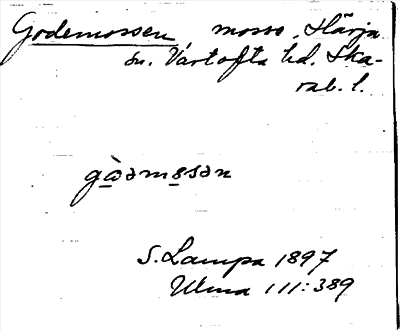 Godemossen, mosse, Härja
sn. Vartofta hd. Ska-
rab. l.
gòəmosən
S. Lampa 1897
Ulma 111:389